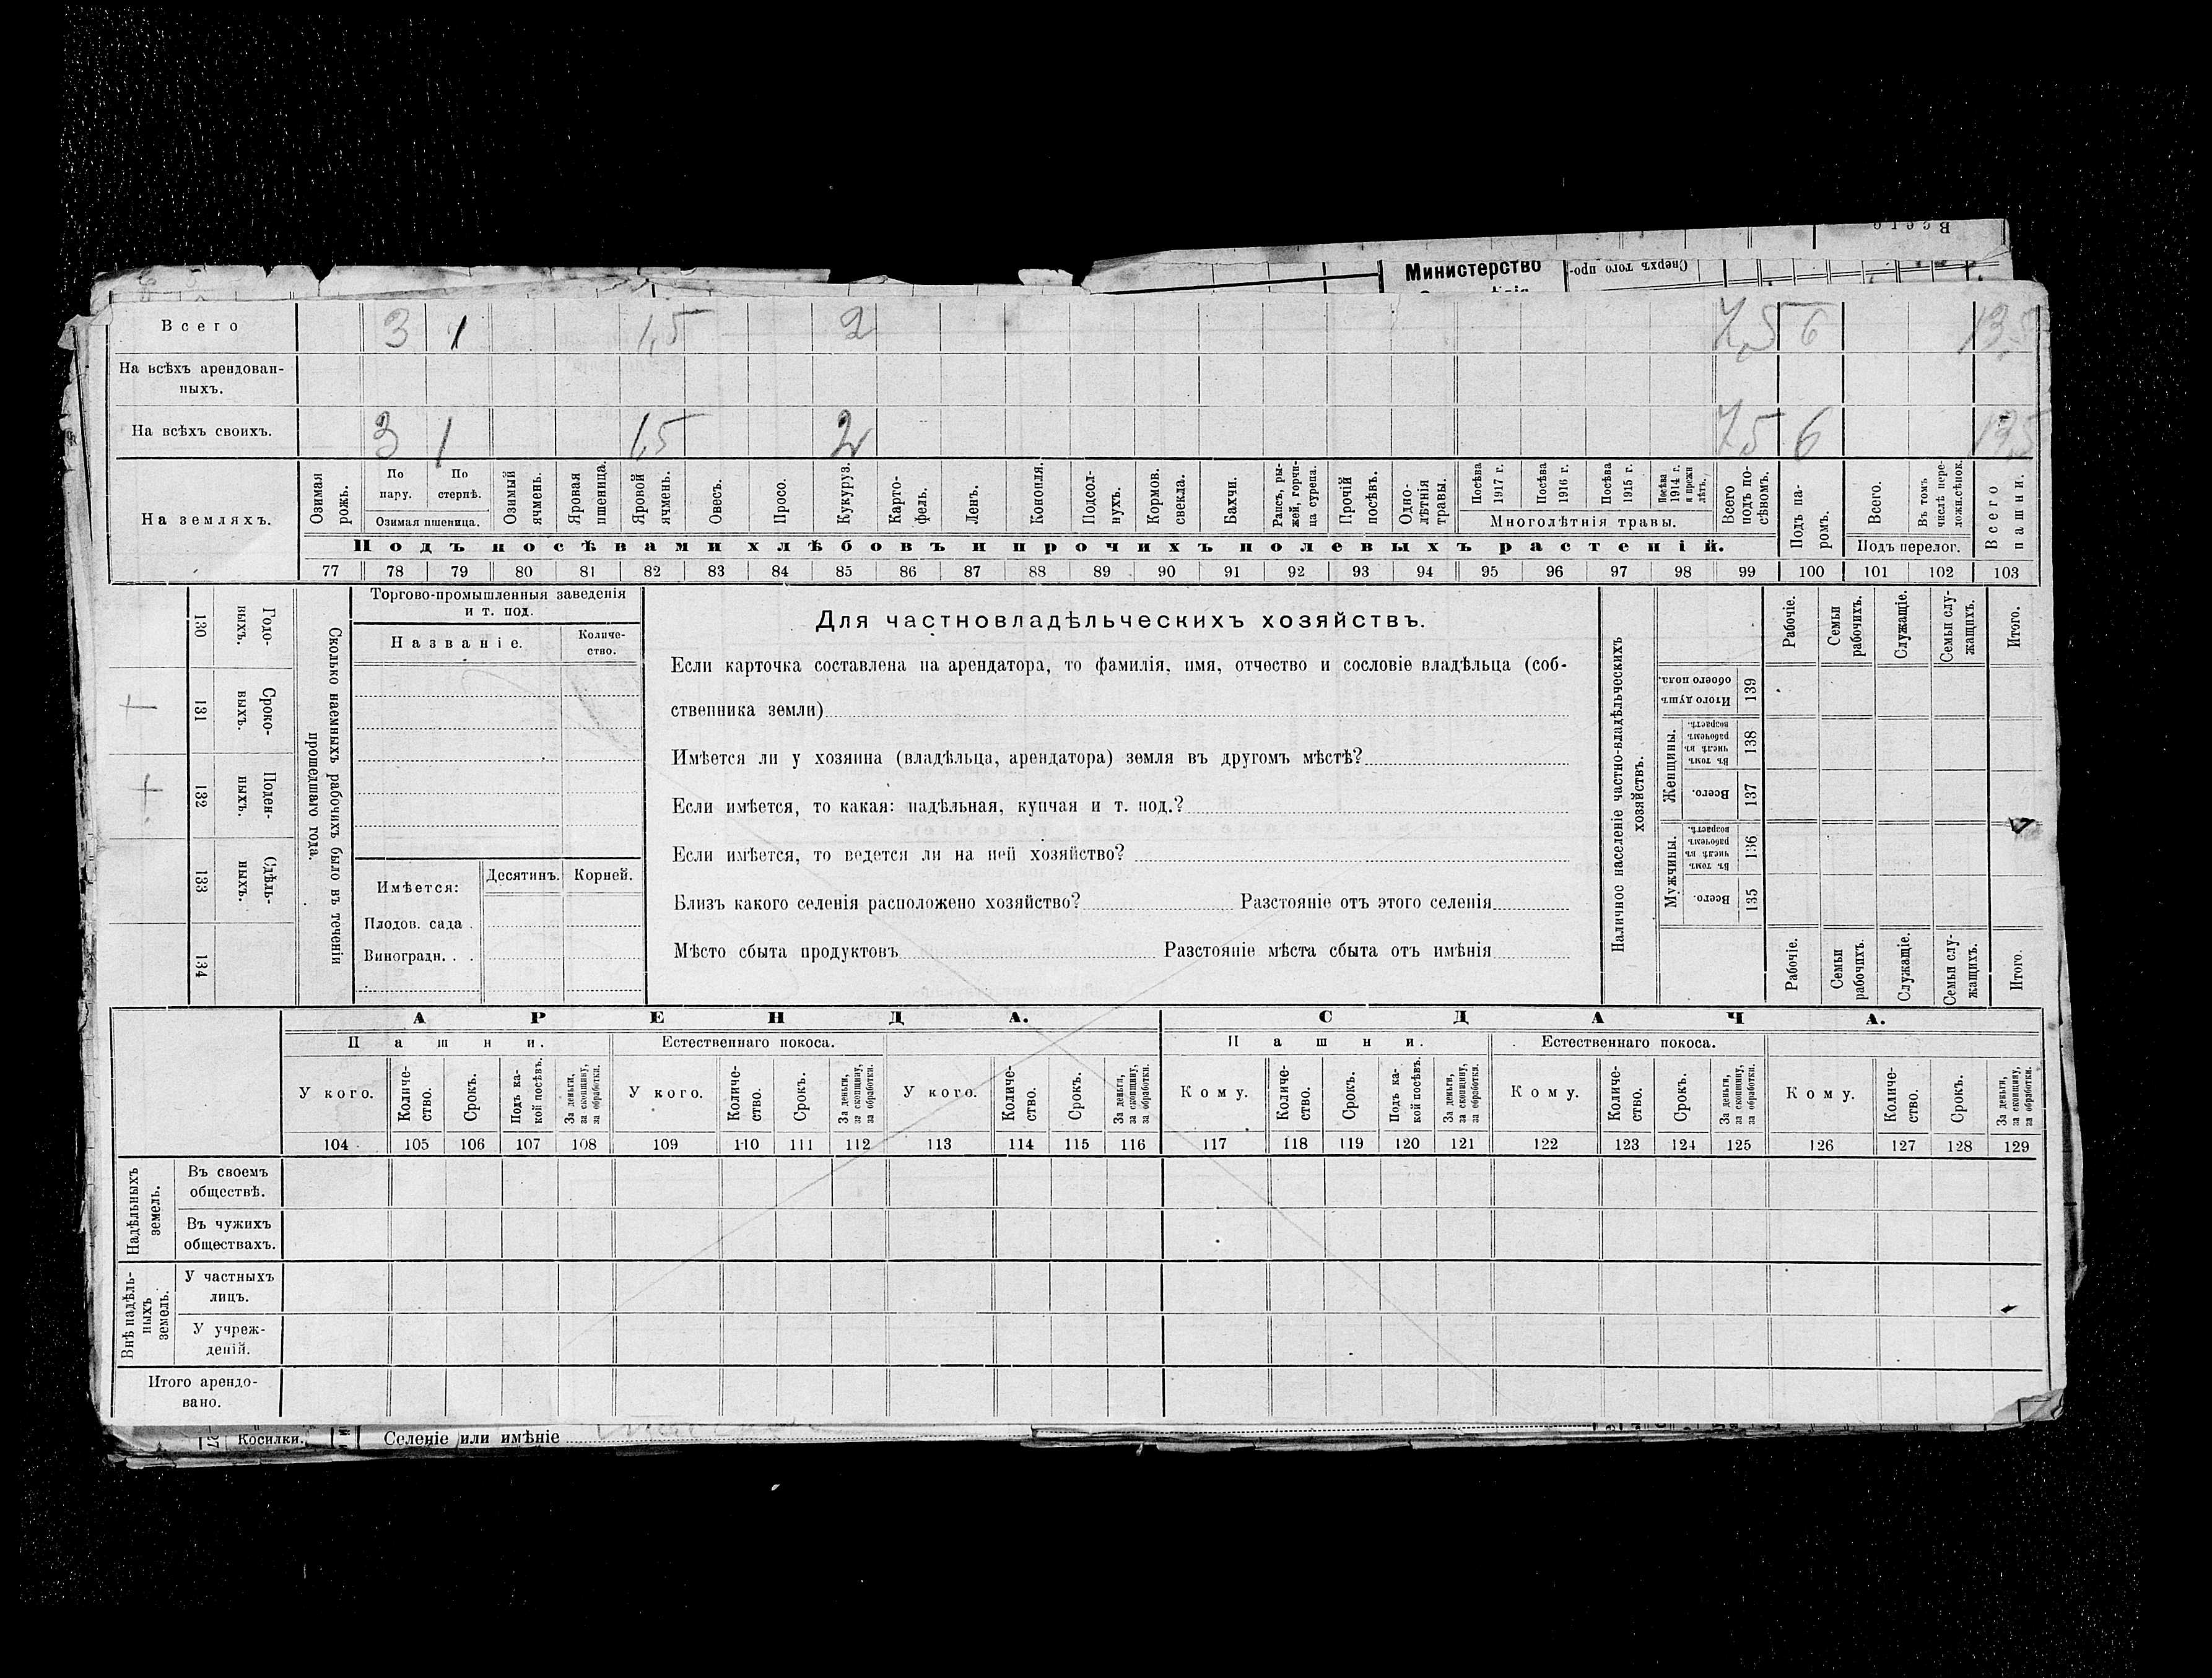 Всего
Министерство
Сверхъ того про-
Всего 3 1 1,5 2 7,5 6 13,5
На всѣхъ арендован-
ныхъ.
На всѣхъ своихъ. 3 1 1,5 2 7,5 6 13,5
На земляхъ.
Озимая рожь.
По пару.
По стернѣ.
Озимая пшеница.
Озимый ячмень.
Яровая пшеница.
Яровой ячмень.
Овесъ.
Просо.
Кукуруз.
Карто-
фель.
Ленъ.
Конопля.
Подсол-
нухъ.
Кормов.
свекла.
Бахчи.
Рапсъ, ры-
жей, горчи-
ца сурепа.
Прочій
посѣвъ.
Одно-
лѣтнія
травы.
Посѣва 1917 г.
Посѣва 1916 г.
Посѣва 1915 г.
Посѣва 1914 г. и прежн лѣтъ.
Многолѣтнія травы.
Всего
подъ по-
сѣвомъ.
Подъ па-
ромъ.
Всего.
Въ томъ
числѣ пере-
ложн.сѣнок.
Подъ перелог.
Всего
пашни.
Подъ посѣвами хлѣбовъ и прочихъ полевыхъ растеній.
77 78 79 80 81 82 83 84 85 86 87 88 89 90 91 92 93 94 95 96 97 98 99 100 101 102 103
130 Годо-
выхъ.
131 Сроко-
выхъ.
132 Поден-
ныхъ.
133 Сдѣль-
ныхъ.
134
Сколько наемныхъ рабочихъ было въ теченіи
прошедшаго года.
Торгово-промышленныя заведенія
и т. под.
Названіе.
Количе-
ство.
Имѣется:
Десятинъ.
Корней.
Плодов. сада .
Виноградн. . .
Для частновладѣльческихъ хозяйствъ.
Если карточка составлена на арендатора, то фамилія, имя, отчество и сословіе владѣльца (соб-
ственника земли)
Имѣется ли у хозяина (владѣльца, арендатора) земля въ другомъ мѣстѣ?
Если имѣется, то какая: надѣльная, купчая и т. под.?
Если имѣется, то ведется ли на ней хозяйство?
Близъ какого селенія расположено хозяйство? Разстояніе отъ этого селенія
Мѣсто сбыта продуктовъ Разстояніе мѣста сбыта отъ имѣнія
Наличное населеніе частно-владѣльческихъ
хозяйствъ.
Рабочіе.
Семьи
рабочихъ.
Служащіе.
Семьи слу-
жащихъ.
Итого.
Итого душъ
обоего пола.
139
Женщины.
Въ томъ
числѣ въ
рабочемъ
возрастѣ.
138
Всего.
137
Мужчины.
Въ томъ
числѣ въ
рабочемъ
возрастѣ.
136
Всего.
135
Рабочіе.
Семьи
рабочихъ.
Служащіе.
Семьи слу-
жащихъ.
Итого.
АРЕНДА.
СДАЧА.
Пашни.
Естественнаго покоса.
Пашни.
Естественнаго покоса.
У кого.
Количе-
ство.
Срокъ.
Подъ ка-
кой посѣвъ.
За деньги,
за скопщину,
за обработки.
У кого.
Количе-
ство.
Срокъ.
За деньги,
за скопщину,
за обработки.
У кого.
Количе-
ство.
Срокъ.
За деньги,
за скопщину,
за обработки.
Кому.
Количе-
ство.
Срокъ.
Подъ ка-
кой посѣвъ.
За деньги,
за скопщину,
за обработки.
Кому.
Количе-
ство.
Срокъ.
За деньги,
за скопщину,
за обработки.
Кому.
Количе-
ство.
Срокъ.
За деньги,
за скопщину,
за обработки.
104 105 106 107 108 109 110 111 112 113 114 115 116 117 118 119 120 121 122 123 124 125 126 127 128 129
Надѣльныхъ
земель.
Въ своемъ
обществѣ.
Въ чужихъ
обществахъ.
Внѣ надѣль-
ныхъ
земель.
У частныхъ
лицъ.
У учреж-
деній.
Итого арендо-
вано.
Косилки.
Селеніе или имѣніе